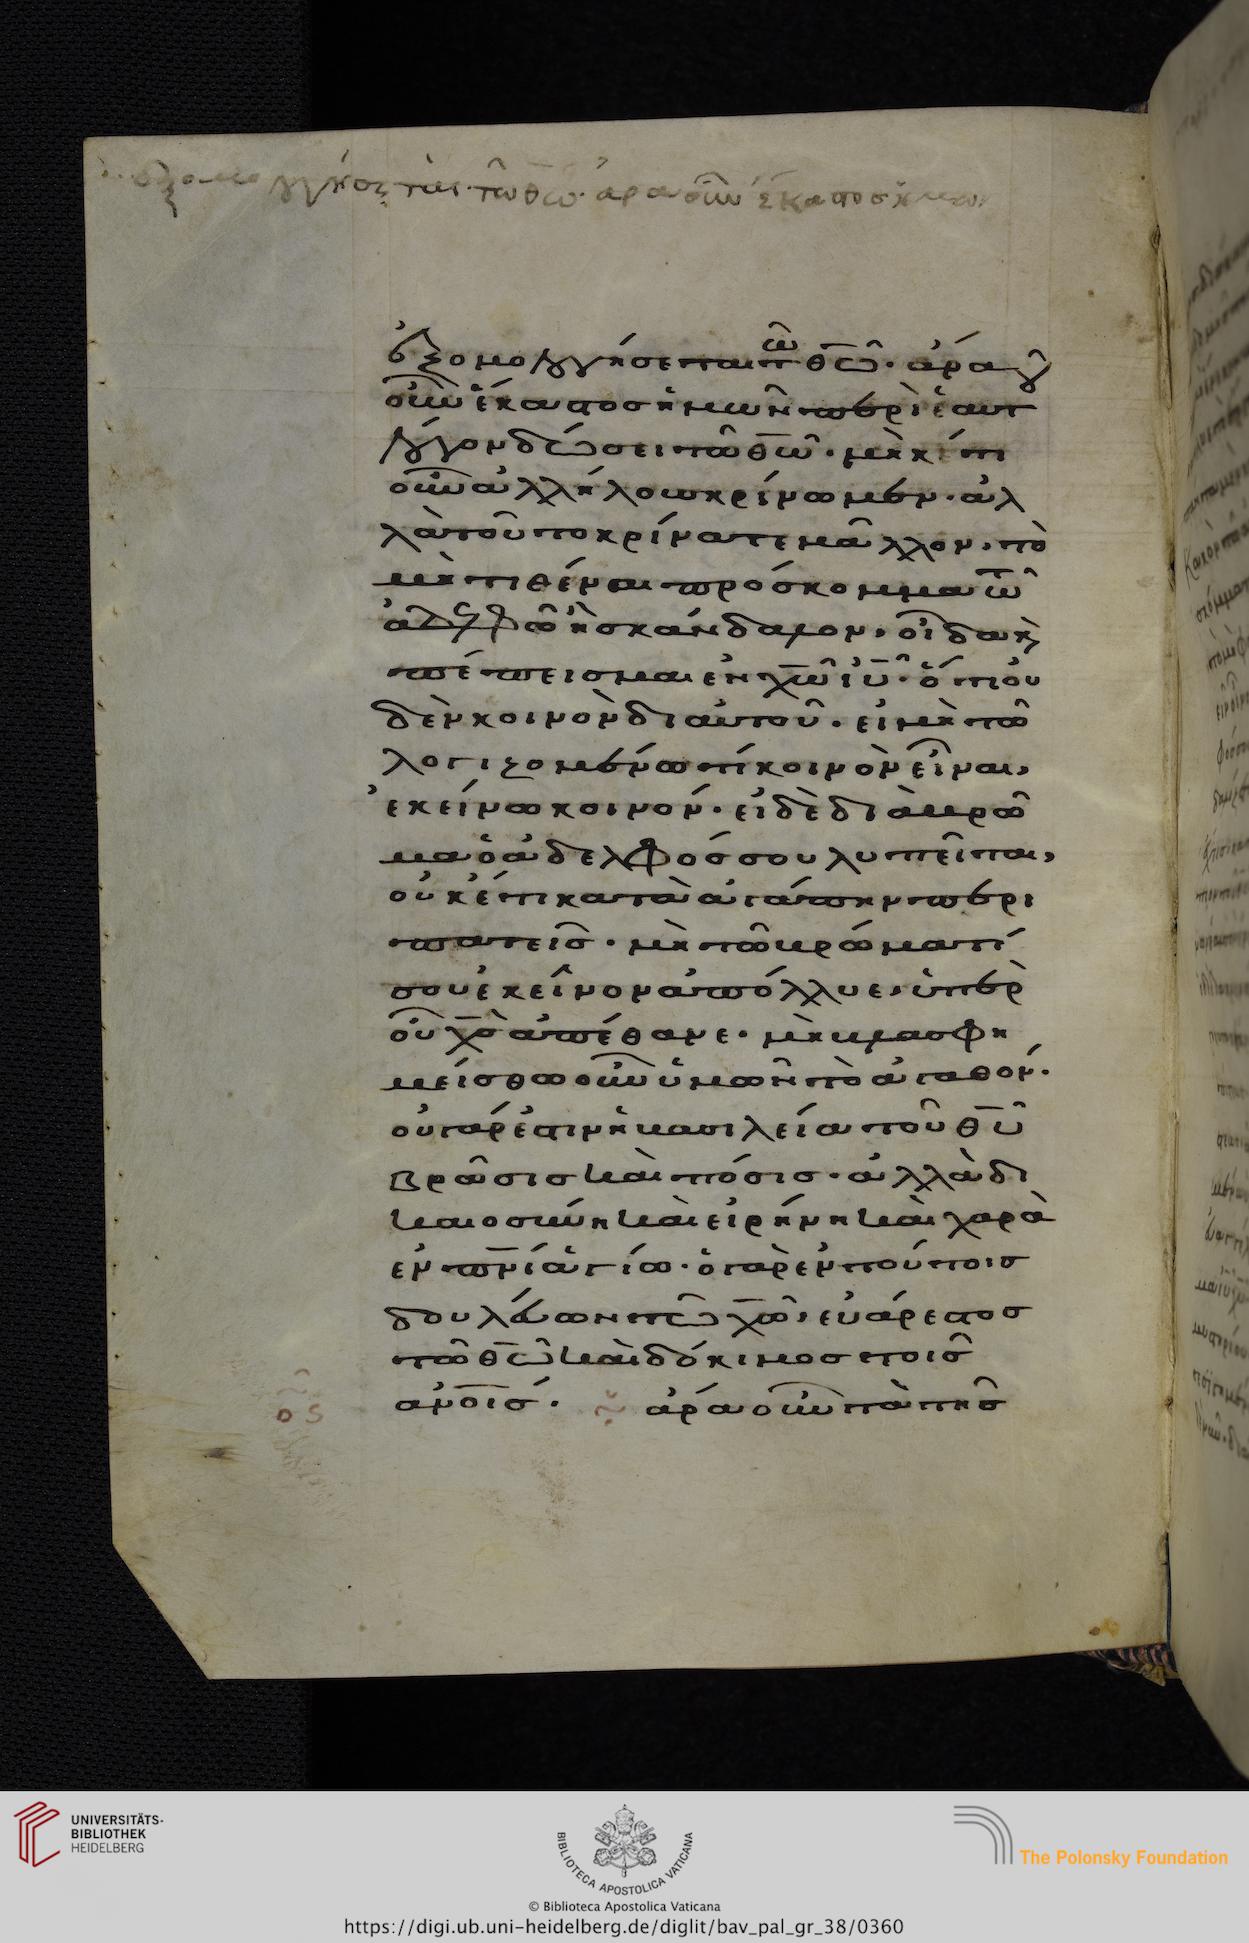 ἐξομολογήσεται τῶ θ̅ω̅. ἄρα οὖν ἕκαστος ἡμων
ἐξομολογήσεται τῶ θ̅ω̅. ἄρα
οὖν ἕκαστος ἡμῶν περὶ ἑαυτ
λόγον δώσει τῶ θ̅ω̅. μηκέτι
οὖν ἀλλήλους κρίνωμεν. ἀλ
λὰ τοῦτο κρίνατε μᾶλλον, τὸ
μὴ τιθέναι πρόσκομμα τῶ
ἀδελφῶ ἢ σκάνδαλον, οἶδα κ
πέπεισμαι ἐν χ̅ω̅ ι̅υ̅. ὅτι οὐ
δὲν κοινὸν δι αὐτοῦ. εἰ μὴ τῶ
λογιζομένω τί κοινὸν εἶναι,
ἐκείνω κοινόν. εἰ δὲ διὰ βρῶ
μα ὁ ἀδελφός σου λυπεῖται,
οὐκέτι κατὰ ἀγάπην περι
πατεῖς. μὴ τῶ βρώματί
σου ἐκεῖνον ἀπόλλυε, ὑπὲρ
οὗ χ̅ς̅ ἀπέθανε. μὴ βλασφη
μείσθω οὖν ὑμῶν τὸ ἀγαθόν.
οὐ γάρ ἐστιν ἡ βασιλεία τοῦ θ̅υ̅
βρῶσις καὶ πόσις. ἀλλὰ δι
καιοσύνη καὶ εἰρήνη καὶ χαρὰ
ἐν π̅ν̅ι̅ ἁγίω. ὁ γὰρ ἐν τούτοις
δουλεύων τῶ χ̅ω̅, εὐάρεστος
τῶ θ̅ω̅ καὶ δόκιμος τοῖς
α̅ν̅ο̅ι̅ς. ἄρα οὖν τὰ τῆς
UNIVERSITÄTS-
BIBLIOTHEK
HEIDELBERG
BIBLIOTECA APOSTOLICA VATICANA
The Polonsky Foundation
© Biblioteca Apostolica Vaticana
https://digi.ub.uni-heidelberg.de/diglit/bav_pal_gr_38/0360